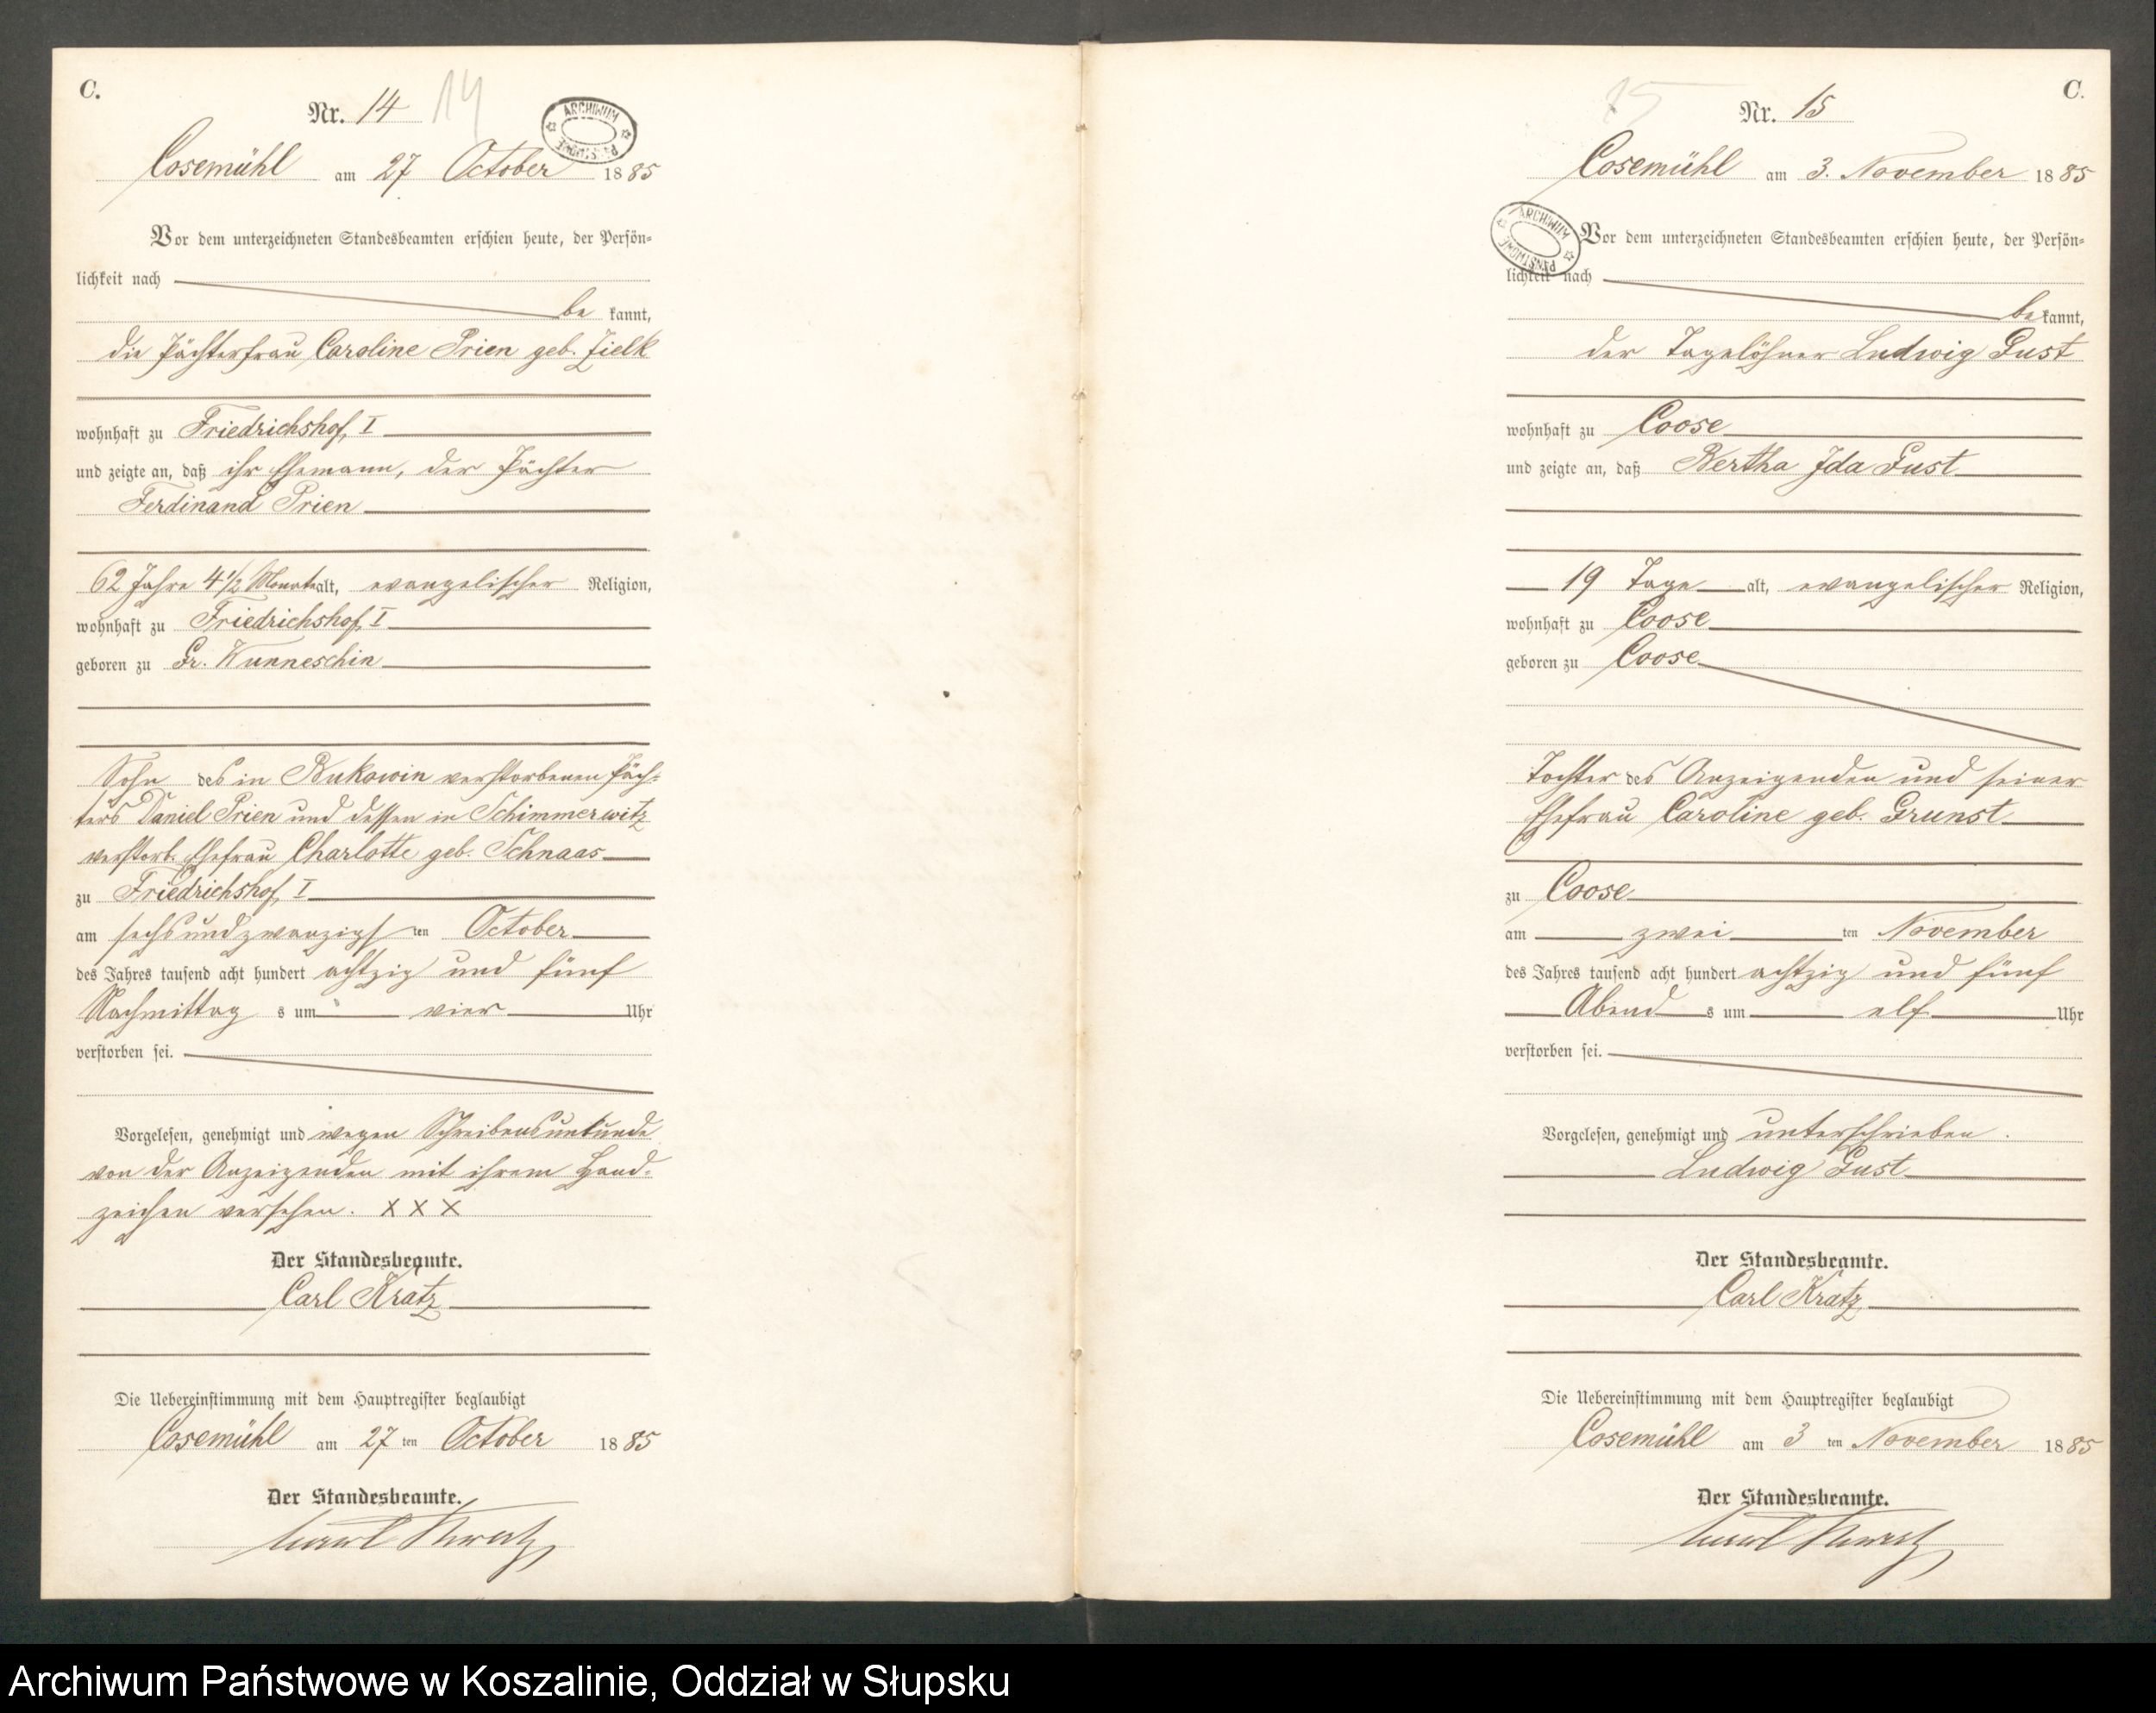 C.
Nr. 14 14
ARCHIWUM PAŃSTWOWE
Cosemühl am 27 October 1885
Vor dem unterzeichneten Standesbeamten erschien heute, der Persön=
lichkeit nach
be kannt,
die Pächterfrau Caroline Prien geb. Zielk
wohnhaft zu Friedrichshof, I
und zeigte an, daß ihr Ehemann, der Pächter
Ferdinand Prien
62 Jahre 4 1/2 Monate alt, evangelischer Religion,
wohnhaft zu Friedrichshof, I
geboren zu Gr. Wunneschin
Sohn des in Bukowin verstorbenen Päch=
ters Daniel Prien und dessen in Schimmerwitz
verstorb. Ehefrau Charlotte geb. Schnaas
zu Friedrichshof, I
am sechsundzwanzigsten October
des Jahres tausend acht hundert achtzig und fünf
Nachmittags um vier Uhr
verstorben sei.
Vorgelesen, genehmigt und wegen Schreibensunkunde
von der Anzeigenden mit ihrem Hand=
zeichen versehen. X X X
Der Standesbeamte.
Carl Kratz
Die Uebereinstimmung mit dem Hauptregister beglaubigt
Cosemühl am 27 ten October 1885
Der Standesbeamte.
Carl Kratz
C.
15
Nr. 15
Cosemühl am 3. November 1885
ARCHIWUM PAŃSTWOWE
Vor dem unterzeichneten Standesbeamten erschien heute, der Persön=
lichkeit nach
be kannt,
der Tagelöhner Ludwig Gust
wohnhaft zu Coose
und zeigte an, daß Bertha Ida Gust
19 Tage alt, evangelischer Religion,
wohnhaft zu Coose
geboren zu Coose
Tochter des Anzeigenden und seiner
Ehefrau Caroline geb. Grunst
zu Coose
am zweiten November
des Jahres tausend acht hundert achtzig und fünf
Abends um elf Uhr
verstorben sei.
Vorgelesen, genehmigt und unterschrieben.
Ludwig Gust
Der Standesbeamte.
Carl Kratz
Die Uebereinstimmung mit dem Hauptregister beglaubigt
Cosemühl am 3 ten November 1885
Der Standesbeamte.
Carl Kratz
Archiwum Państwowe w Koszalinie, Oddział w Słupsku